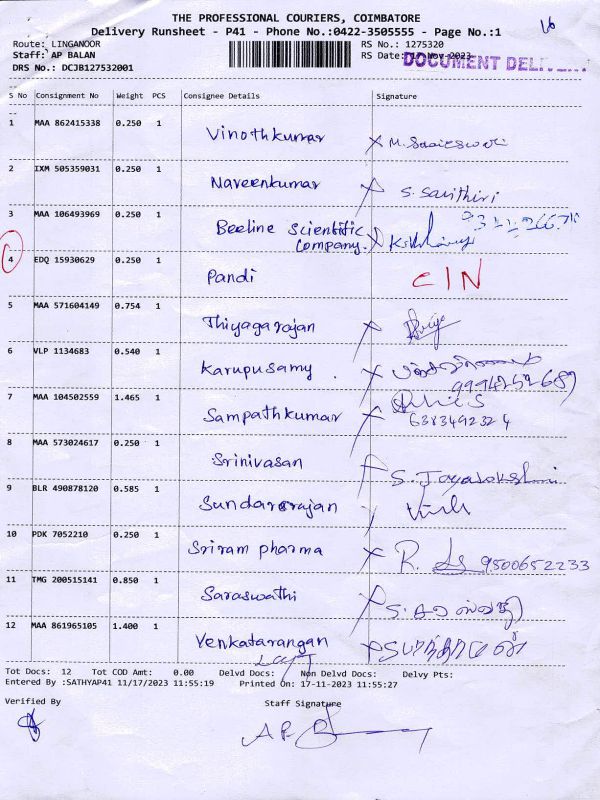 THE PROFESSIONAL COURIERS, COIMBATORE
Delivery Runsheet - P41 - Phone No.:0422-3505555 - Page No.:1
Route: LINGANOOR
RS No.: 1275320
Staff: AP BALAN
RS Date: Nov-2023
DOCUMENT
DRS No.: DCJB127532001
S No Consignment No Weight PCS Consignee Details Signature
1 MAA 862415338 0.250 1 Vinothkumar
2 IXM 505359031 0.250 1 Naveenkumar S. Savithiri
3 MAA 106493969 0.250 1 Beeline Scientific
Company.
4 EDQ 15930629 0.250 1 Pandi CIN
5 MAA 571604149 0.754 1 Thiyagarajan
6 VLP 1134683 0.540 1 Karupusamy
7 MAA 104502559 1.465 1 Sampathkumar
8 MAA 573024617 0.250 1 Srinivasan S. Jayalakshmi
9 BLR 490878120 0.585 1 Sundararajan
10 PDK 7052210 0.250 1 Sriram pharma R. 9500652233
11 TMG 200515141 0.850 1 Saraswathi
12 MAA 861965105 1.400 1 Venkatarangan
Tot Docs: 12 Tot COD Amt: 0.00 Delvd Docs: Non Delvd Docs: Delvy Pts:
Entered By :SATHYAP41 11/17/2023 11:55:19 Printed On: 17-11-2023 11:55:27
Verified By Staff Signature